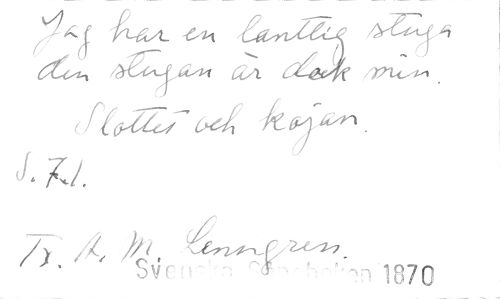 Jag har en lantlig stuga
den stugan är dock min.
Slottet och kojan.
S. 7.1.
Tr. A. M. Lenngren.
Svenska Sångboken 1870